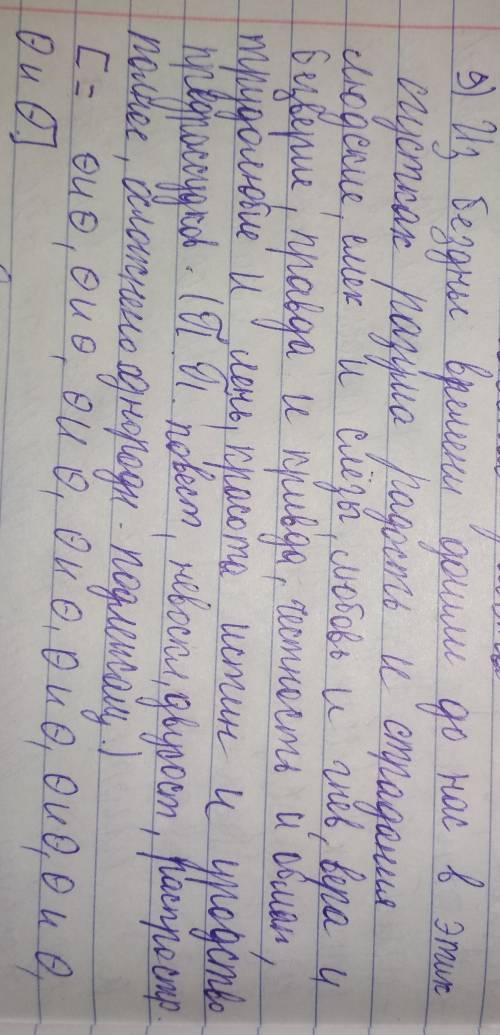 9) Из бездны времени дошли до нас в этих
сгустках разума радость и страдания
людские, смех и слёзы, любовь и гнев, вера и
безверие, правда и кривда, честность и обман,
трудолюбие и лень, красота истин и уродство
предрассудков. (П.П. повест, невоскл, двусост, распростр.
полное, осложнено однородн. подлежащ.)
[= O и O, O и O, O и O, O и O, O и O, O и O, O и O,
O и O.]